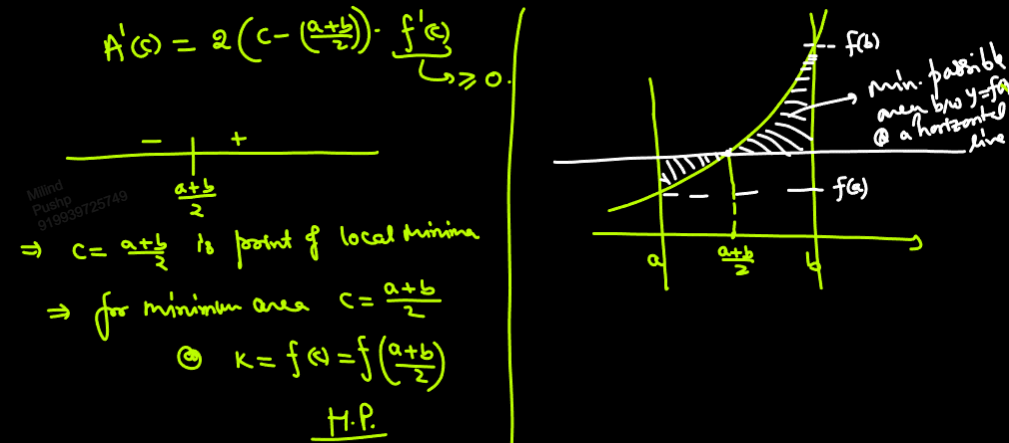 A'(c) = 2 (c - (a+b/2)) · f'(c)
≥ 0.
- +
a+b/2
Milind
Pushp
919939725749
⇒ c = a+b/2 is point of local minima
⇒ for minimum area c = a+b/2
@ K = f(c) = f(a+b/2)
H.P.
f(b)
min. possible
area b/w y=f(
@ a horizontal
line
f(a)
a a+b/2 b